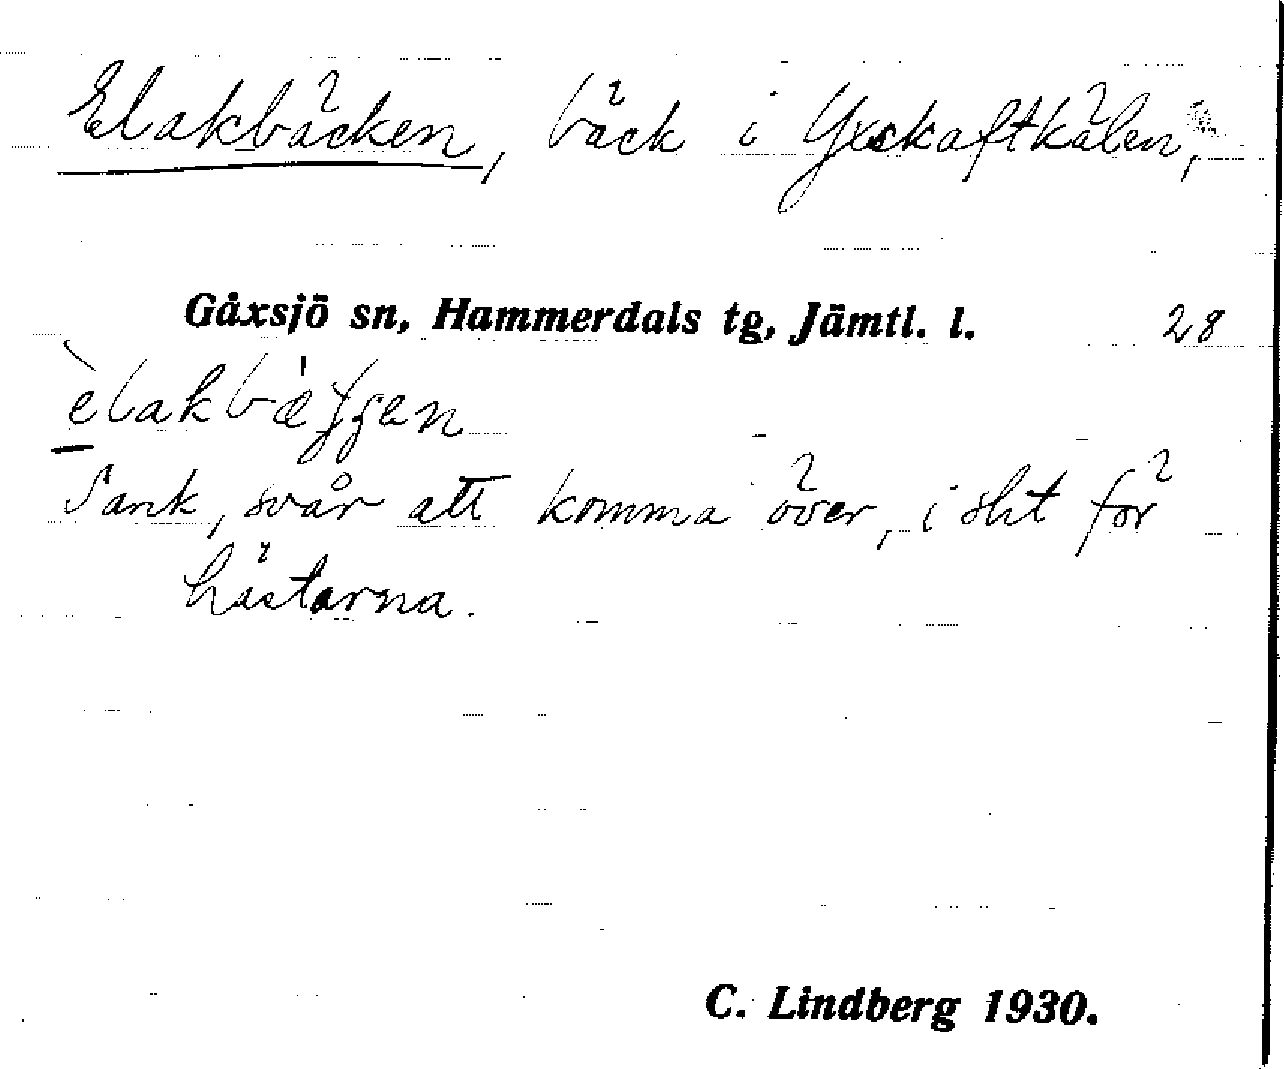 Elakbäcken, bäck i Yxskaftkälen,
Gåxsjö sn, Hammerdals tg, Jämtl. l. 28
Sank, svår att komma över, i sht för
hästarna.
C. Lindberg 1930.